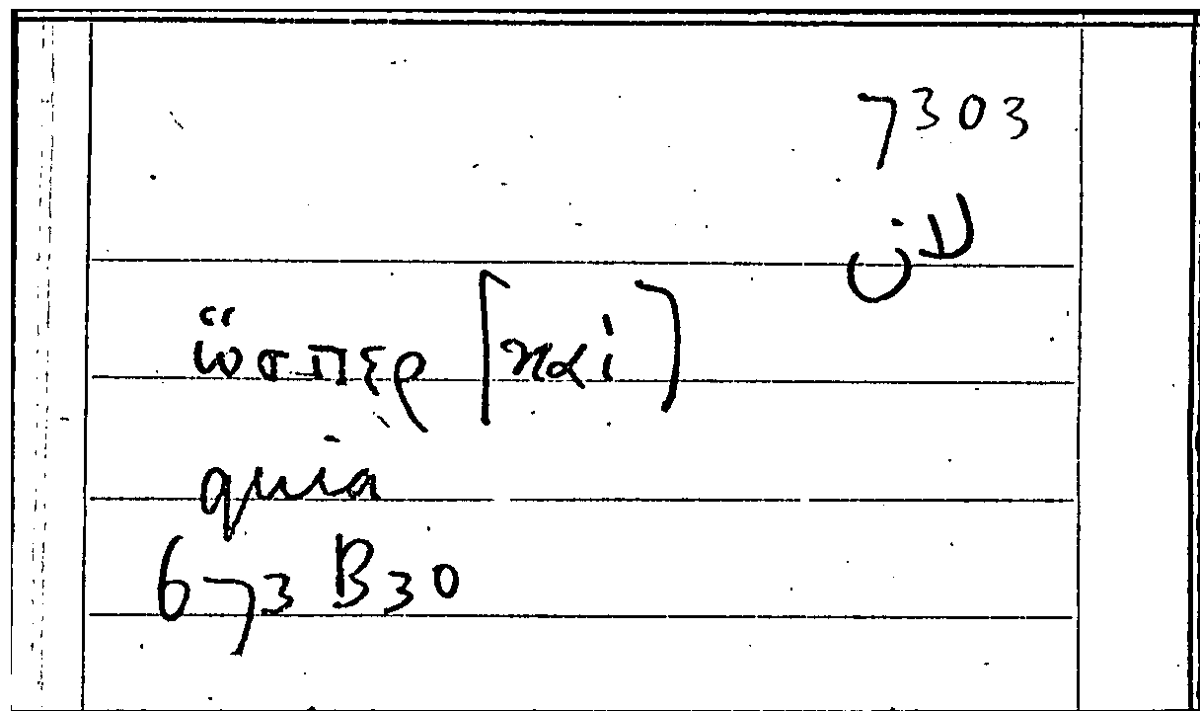 7303
لان
ὥσπερ [καὶ]
quia
673 B 30